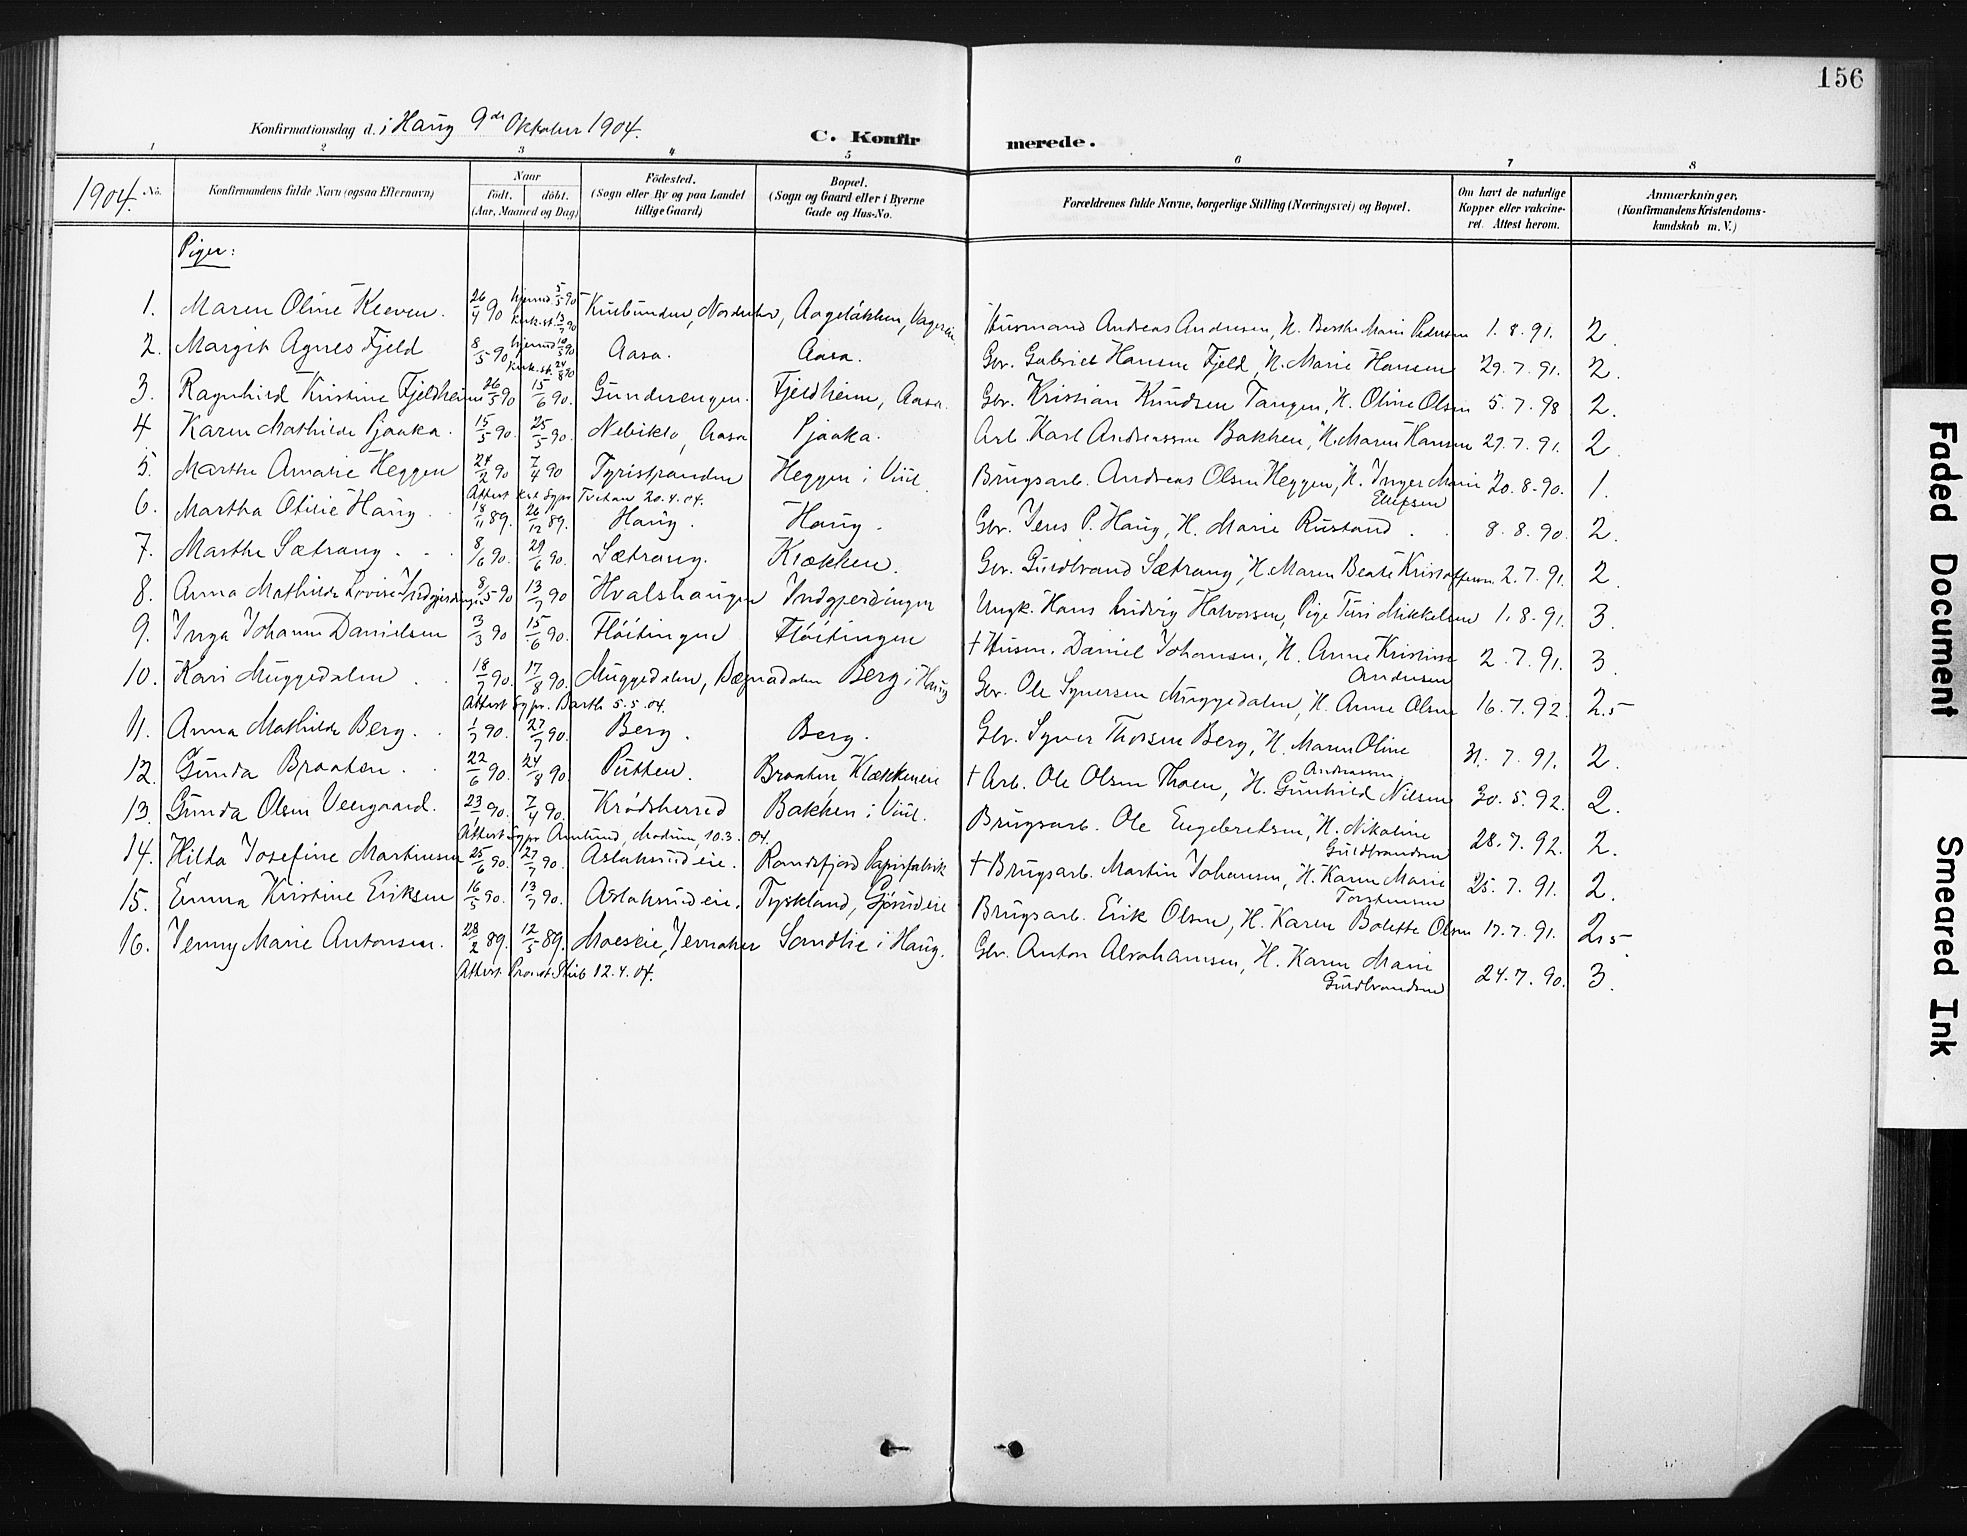 156
Konfirmationsdag d. i Haug 9de Oktober 1904.
C. Konfirmerede.
1 2 3 4 5 6 7 8
1904. No.
Konfirmandens fulde Navn (ogsaa Efternavn)
Naar
födt. döbt.
(Aar, Maaned og Dag)
Födested.
(Sogn eller By og paa Landet
tillige Gaard)
Bopæl.
(Sogn og Gaard eller i Byerne
Gade og Hus-No.
Forældrenes fulde Navne, borgerlige Stilling (Næringsvei) og Bopæl.
Om havt de naturlige
Kopper eller vakcine-
ret. Attest herom.
Anmærkninger.
(Konfirmandens Kristendoms-
kundskab m. V.)
Piger:
1. Maren Oline Kleven. 26/4 90 Hjemd. 5/5 90 Kirk. st. 13/7 90 Norderhov, Husmand Andreas Andersen, H. Berthe Marie Pedersen 1.8.91. 2.
2. Margit Agnes Fjeld 8/5 90 Hjemd 10/5 90 Kirk. st. 24/8 90 Aasa. Aasa. Gbr. Gabriel Hansen Fjeld, H. Marie Hansen 29.7.91. 2.
3. Ragnhild Kristine Fjeldheim 26/5 90 15/6 90. Gunderengen. Fjeldheim, Aasa. Gbr. Kristian Knudsen Tangen, H. Oline Olsen 5.7.98 2.
4 Karen Mathilde Pjaaka. 15/5 90. 25/5 90. Aasa Pjaaka. Arb. Karl Andreassen Bakken, H. Maren Hansen 29.7.91. 2
5. Marthe Amalie Heggen 24/2 90 7/4 90 Tyristranden Heggen i Viul. Brugsarb. Andreas Olsen Heggen, H. Inger Marie Ellefsen 20.8.90. 1.
Attest 20.4.04.
6. Martha Otilie Haug 18/11 89. 26/12 89. Haug. Haug. Gbr. Jens P. Haug, H. Marie Rustand 8.8.90. 2.
7. Marthe Sætrang 8/6 90. 29/6 90. Sætrang. Klækken. Gbr. Guldbrand Sætrang, H. Maren Beate Kristoffersen 2.7.91. 2
8. Anna Mathilde Lovise Indgjerdingen 8/5 90 13/7 90 Hvalshaugen Indgjerdingen Ungk. Hans Ludvig Halvorsen, Pige Turi Mikkelsen 1.8.91. 3.
9. Inga Johanne Danielsen 3/3 90 15/6 90. Flöitingen Flöitingen † Husm. Daniel Johansen, H. Anne Kristine Andersen 2.7.91. 3.
10. Kari Muggedalen 18/7 90. 17/8 90. Muggedalen, Bægnadalen Berg i Haug Gbr. Ole Syversen Muggedalen, H. Anne Olsen 16.7.92. 2.5
Attest Sgpr. Barth 5.5.04.
11. Anna Mathilde Berg. 1/7 90. 27/7 90. Berg. Berg. Gbr. Syver Thorsen Berg, H. Maren Oline Andreassen 31.7.91. 2.
12. Gunda Braaten 22/6 90. 24/8 90. Putten. Braaten Klækkeneie † Arb. Ole Olsen Thoen, H. Gunhild Nilsen 30.5.92. 2.
13. Gunda Olsen Veergaard. 23/1 90. 7/4 90. Krödsherred Bakken i Viul. Brugsarb. Ole Engebretsen, H. Nikoline Guldbrandsen 28.7.92. 2.
Attest Sgpr. Amlund, Modum, 10.3.04.
14. Hilda Josefine Martinsen 25/6 90. 27/7 90. Aslaksrudeie. Randsfjord Papirfabrik † Brugsarb. Martin Johansen, H. Karen Marie Torstensen 25.7.91. 2.
15. Emma Kristine Eriksen 16/5 90. 13/7 90. Aslaksrudeie. Tyskland, Brugsarb. Erik Olsen, H. Karen Bolette Olsen 17.7.91. 2.5
16. Jenny Marie Antonsen. 28/2 89. 12/5 89. Moeseie, Jevnaker Sandlie i Haug. Gbr. Anton Abrahamsen, H. Karen Marie Guldbrandsen 24.7.90. 3.
Attest Provst 12.4.04.
Faded Document
Smeared Ink